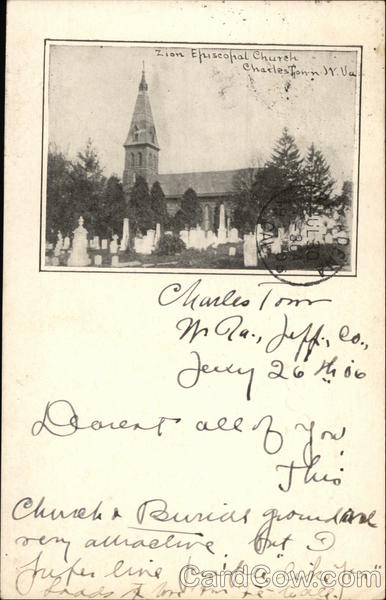 Zion Episcopal Church
Charles Town W. Va
JUL 30
Charles Town
W. Va., Jeff., Co.,
July 26th 06
Dearest all of You
This
Church & Burial ground are
very attractive but I
prefer live
CardCow.com